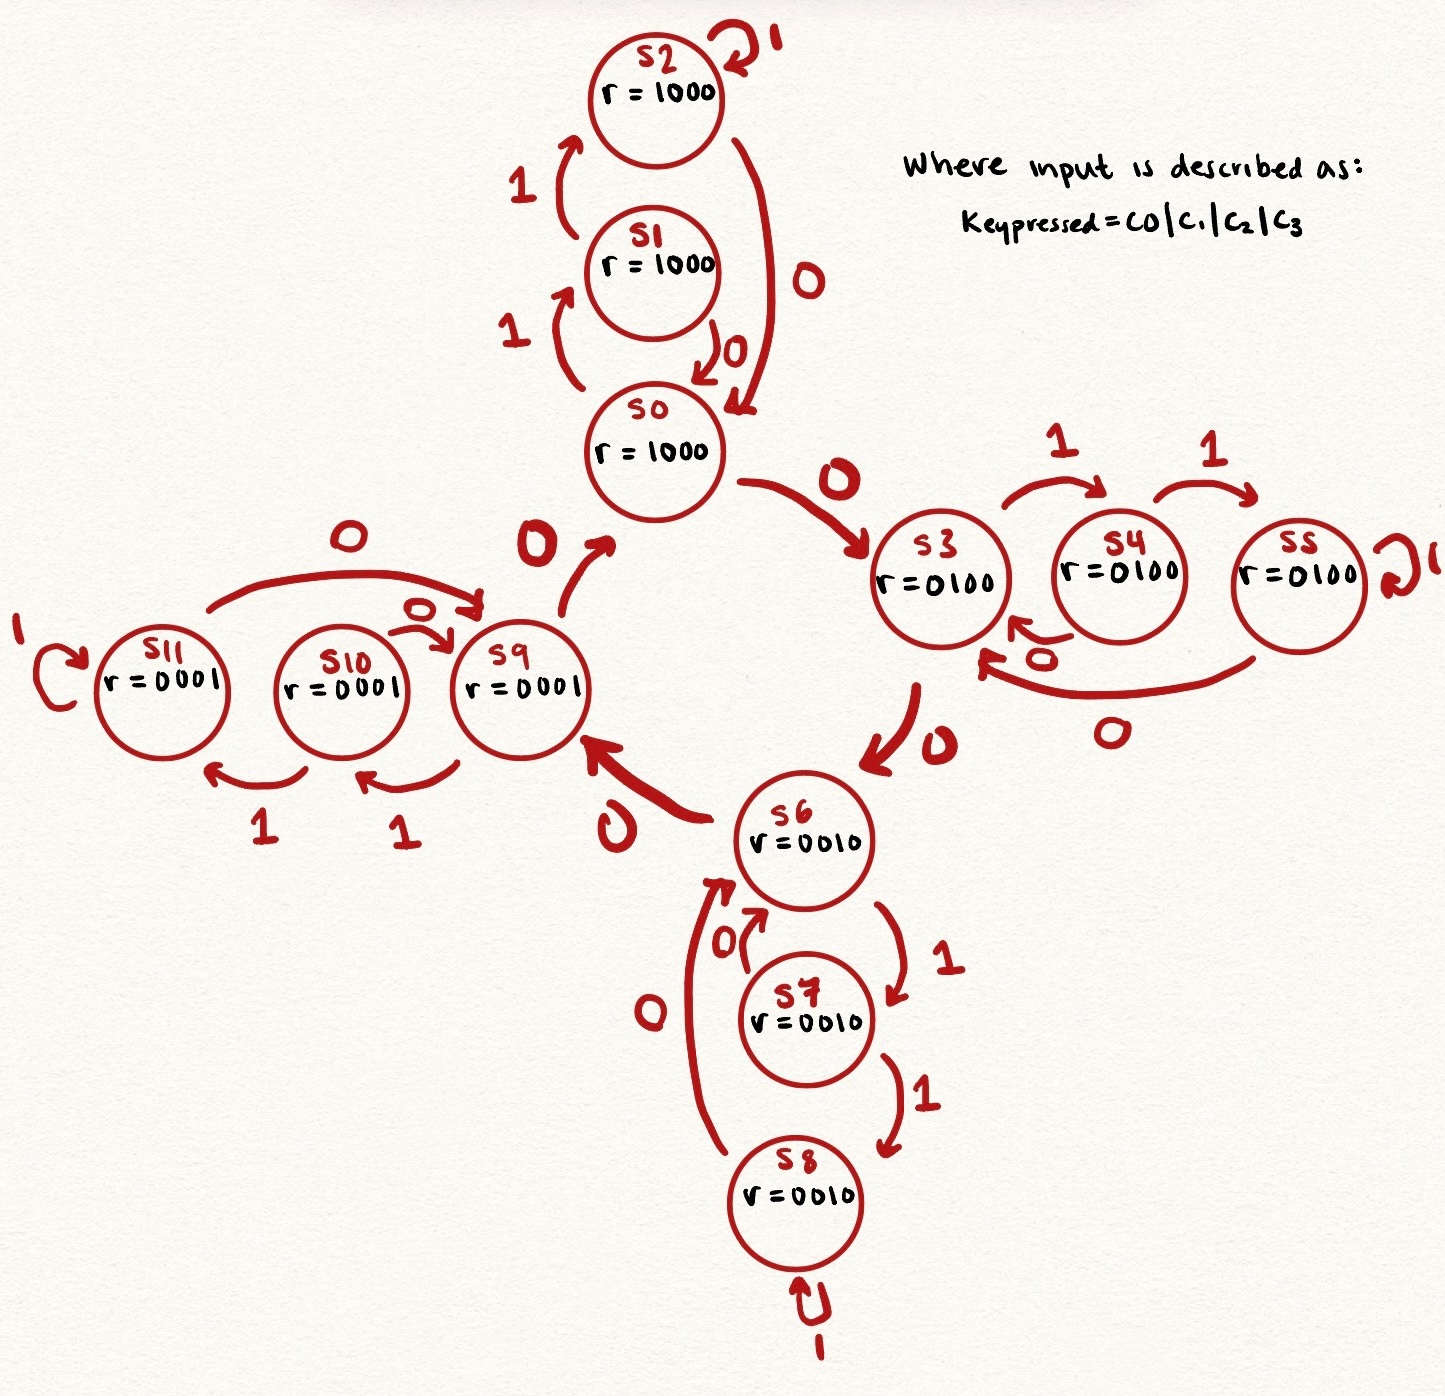 1
S2
r = 1000
Where input is described as:
Keypressed = C0|C1|C2|C3
1
S1
r = 1000
0
1
0
S0
r = 1000
0
1
1
0
0
S3
r = 0100
S4
r = 0100
S5
r = 0100
1
0
1
S11
r = 0001
S10
r = 0001
S9
r = 0001
0
0
0
1
1
0
S6
r = 0010
0
1
0
S7
r = 0010
1
S8
r = 0010
1